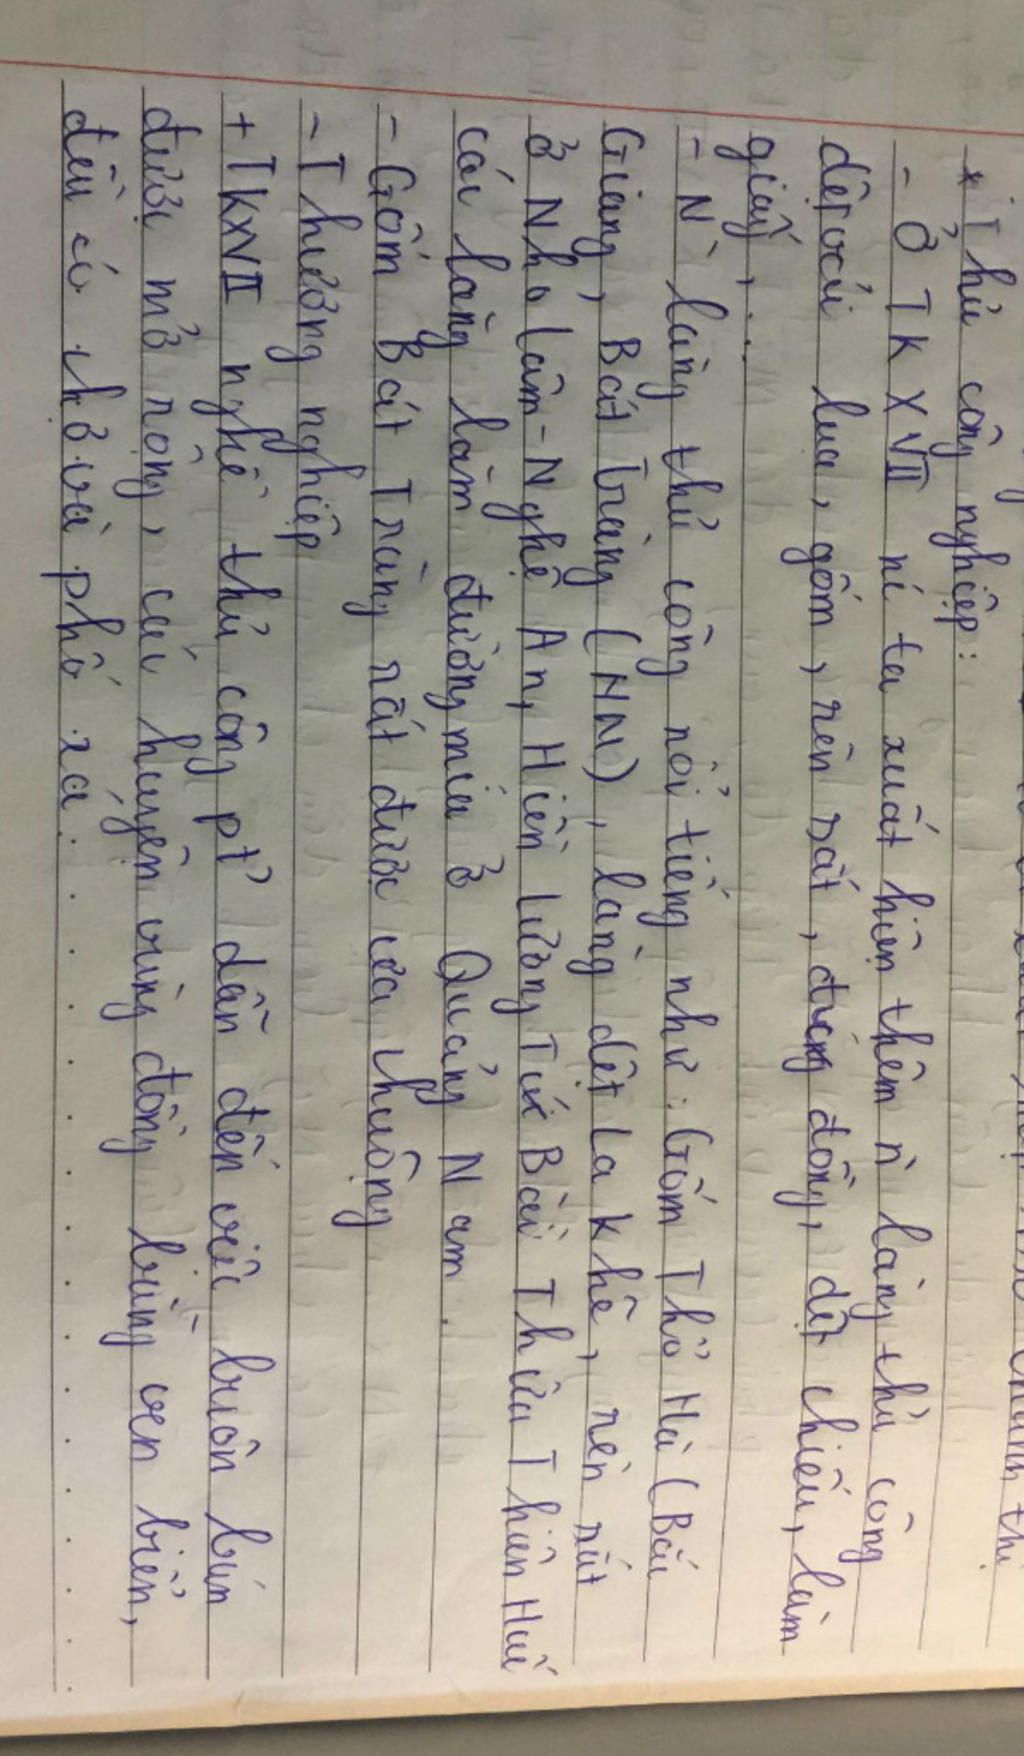 * Thủ công nghiệp:
- Ở TK XVII nc ta xuất hiện thêm n` làng thủ công
dệt vải lụa, gốm, rèn sắt, đúc đồng, dệt chiếu, làm
giấy, ...
- N` làng thủ công nổi tiếng như: Gốm Thổ Hà (Bắc
Giang, Bát Tràng (HN), làng dệt La Khê, rèn sắt
ở Nho Lâm - Nghệ An, Hiền Lương Bài Thừa Thiên Huế
các làng làm đường mía ở Quảng Nam.
- Gốm Bát Tràng rất được ưa chuộng
- Thương nghiệp
+ TK XVII nghề thủ công pt' dẫn đến việc buôn bán
được mở rộng, các huyện vùng đồng bằng ven biển,
đều có chợ và phố xá.